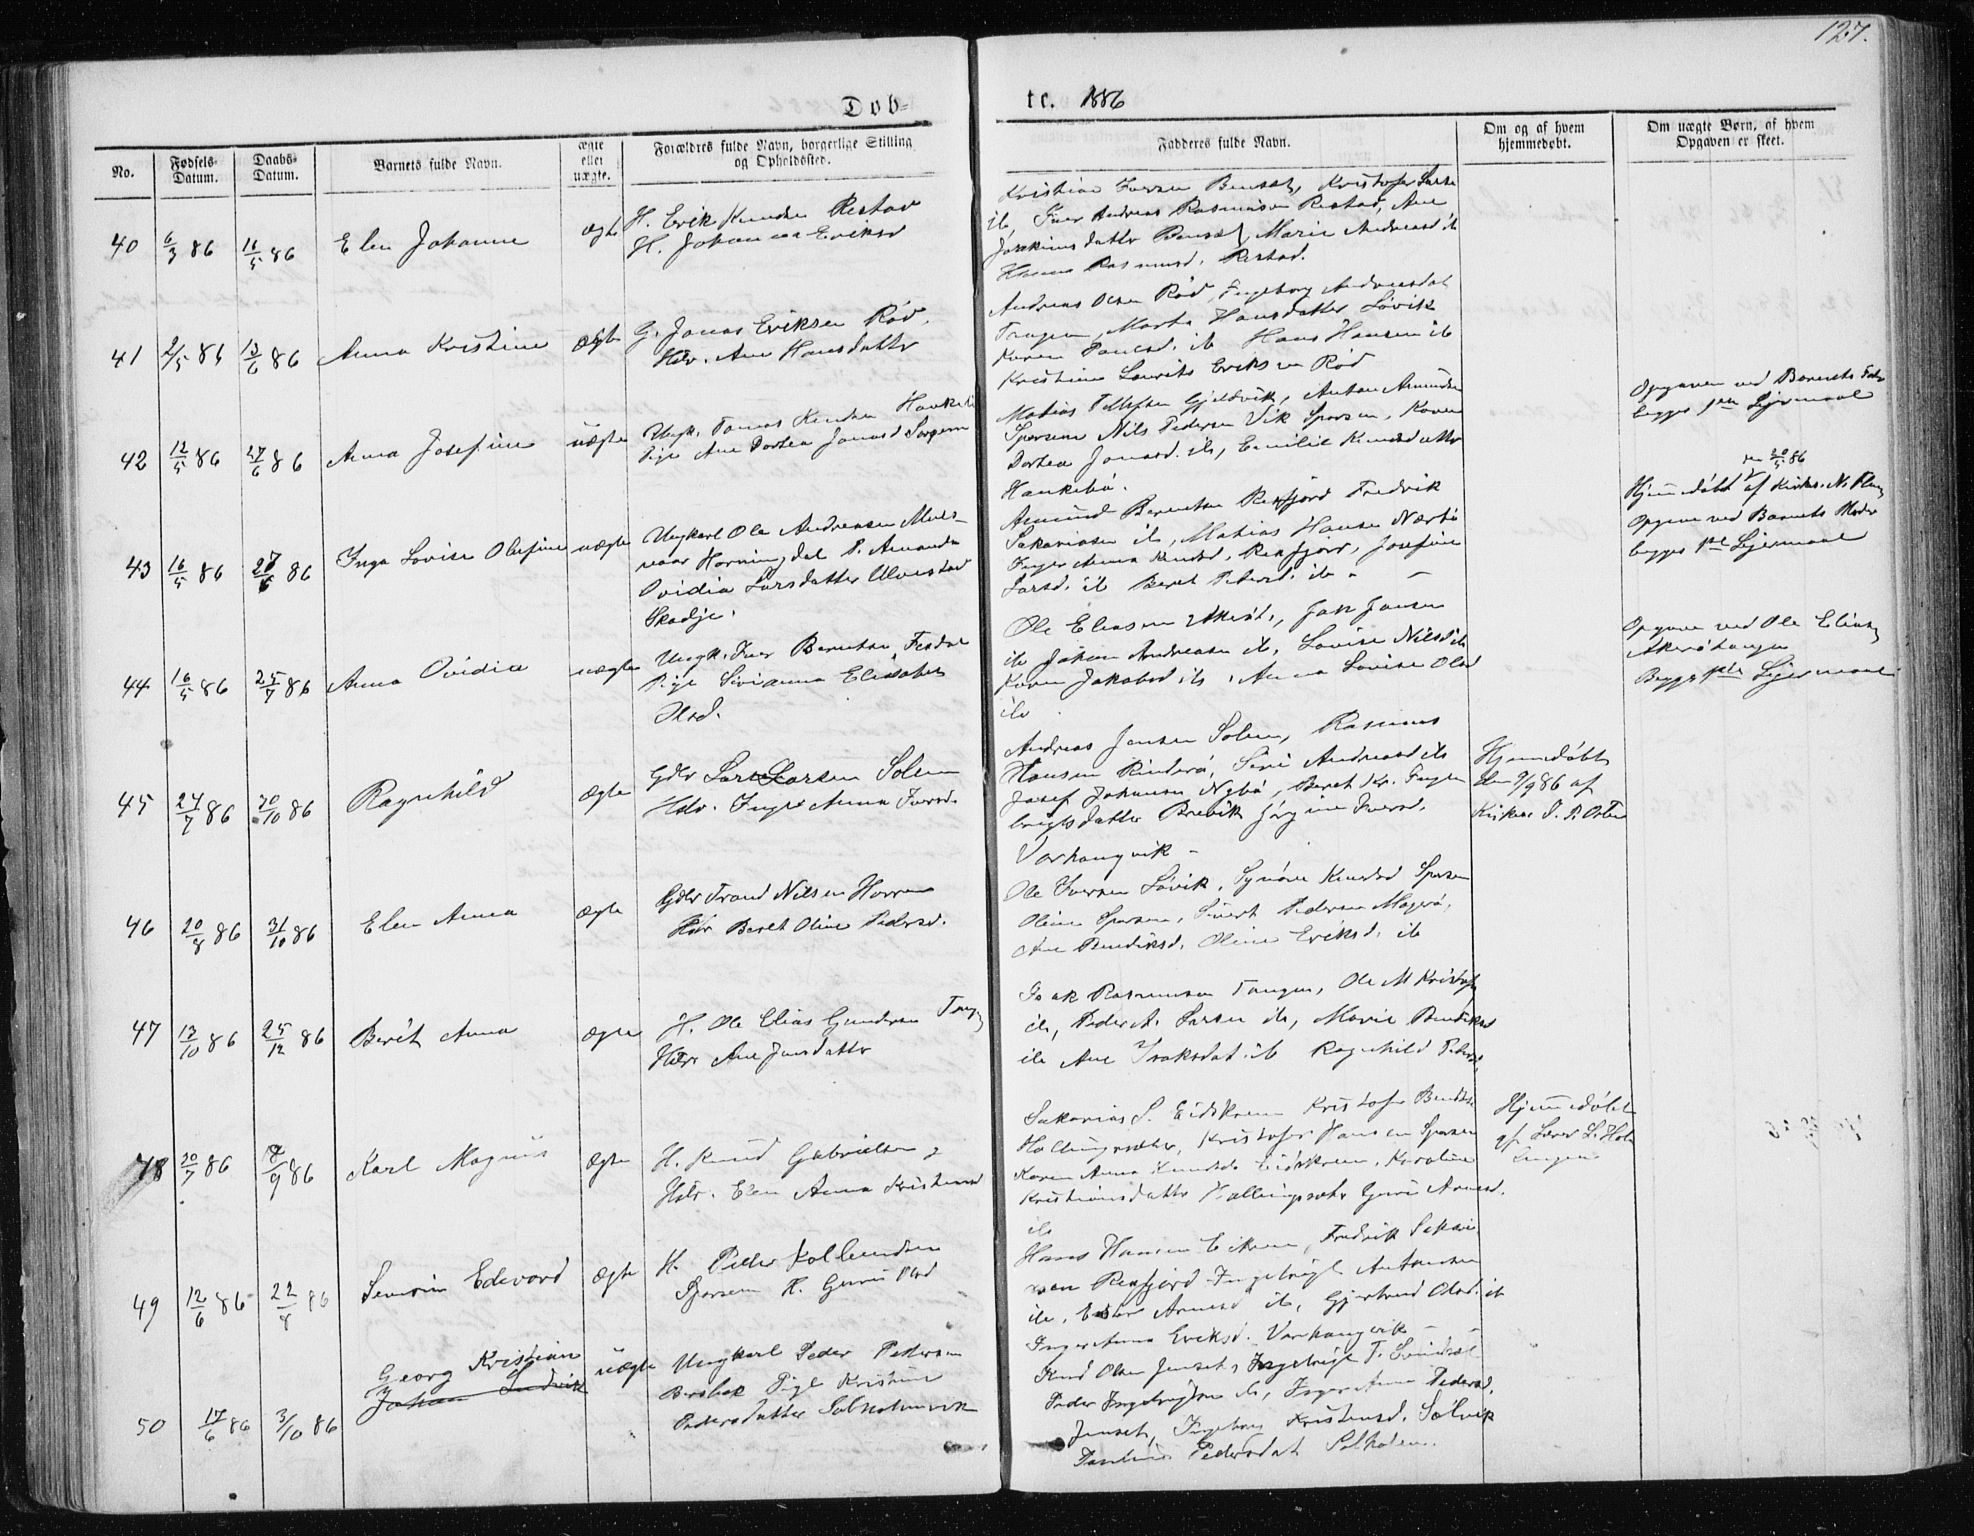 127.
Døb- te. 1886
No.
Fødsels-
Datum.
Daabs-
Datum.
Barnets fulde Navn.
ægte
eller
uægte.
Forældres fulde Navn, borgerlige Stilling
og Opholdssted.
Fadderes fulde Navn.
Om og af hvem
hjemmedøbt.
Om uægte Børn, af hvem
Opgaven er skeet.
40 6/3 86 16/5 86 Elen Johanne ægte
H. Erik Knudsen Restad
H. Johanna Eriksd
Kristian Iversen Bensæt, Kristofer Larsen
ib, Iver Andreas Rasmussen Restad, Ane
Joakimsdatter Bensæt, Marie Andreasd ib
Hanna Rasmusd. Restad.
41 2/5 86 13/6 86 Anna Kristine ægte
G. Jonas Eriksen Rød.
Hstr. Ane Hansdatter
Andreas Olsen Rød, Ingeborg Andreasdat
Tangen, Marta Hansdatter Løvik
Karen Paulsd. ib Hans Hansen ib
Kristian Laurits Eriksen Rød
42 12/5 86 27/6 86 Anna Josefine uægte
Ungk. Tomas Knudsen Haukebø
Pige Ane Dortea Jonasd Sporsem
Matias Tellefsen Gjeldvik, Anton Amundsen
Sporsem Nils Pedersen Vik Sporsem, Karen
Dortea Jonasd. ib, Emilie Knudsdatter
Haukebø.
Opgaven ved Barnets Fader
begges 1ste Lejermaal
43 16/5 86 27/6 86 Inga Lovise Olufine uægte
Ungkarl Ole Andreasen Muls-
vaar Horningdal P. Amanda
Ovidia Larsdatter Ulvestad
Skodje.
Amund Berentsen Rekfjord Fredrik
Sakariasen ib, Matias Hansen Nærbø
Inger Anna Knudsd. Rekfjord, Josefine
Larsd. ib Beret Petersd. ib - -
den 30/5 86
Hjemmedøbt af Kirkes. N.
Opgave ved Barnets Moder
begges 1ste Lejermaal
44 16/5 86 25/7 86 Anna Ovidia uægte
Ungk. Iver Berntsen
Pige Sivianna Elisabet
Olsd.
Ole Eliasen Akerøt., Jakob Jansen
ib Johan Andreasen ib, Lovise Nilsd ib
Karen Jakobsd ib, Anna Lovise Olsd
ib
Opgave ved Ole Eliasen
Akerøtangen
Begges 1ste Lejermaal
45 24/7 86 30/10 86 Ragnhild ægte
Gdbr Lars Larsen Solem
Hstr. Inger Anna Iversd.
Andreas Jensen Solem, Rasmus
Hansen Rinderø, Siri Andreasd ib
Josef Johansen Nybø, Beret Kr. Inge-
brigtsdatter Brevik Jørgine Iversd.
Varhaugvik -
Hjemmedøbt
den 9/9 86 af
Kirkes. P.
46 20/8 86 31/10 86 Elen Anna ægte
Gdbr Trond Nilsen Horrem
Hstr Beret Oline Pedersd.
Ole Iversen Løvik, Synøve Knudsd Sporsem
Oline Sporsem, Sivert Pedersen Magerø,
Ane Bendiksd. Oline Eriksd. ib
47 13/10 86 25/12 86 Berit Anna ægte
H. Ole Elias Gundersen Tangen
Hstr Ane Jansdatter
Isak Rasmussen Tangen, Ole M Kristofs.
ib, Peder A. Larsen ib, Marie Bendiksd
ib Ane Isaksdat. ib Ragnhild Petersd.
48 20/7 86 8/9 86 Karl Magnus ægte
H. Knud Gabrielsen
Hstr. Elen Anna Kristensd
Sakarias S. Eidskrem Kristofer Bendiks.
Hallingsæter, Kristofer Hansen Sporsem
Karen Anna Knudsd. Eidskrem, Karoline
Kristiansdatter Hallingsæter Guru Arnesd.
ib
Hjemmedøbt
af Lærer L. Hol-
lingen
49 12/6 86 22/8 86 Severin Edevard ægte
H. Peder Kolbeinsen
Sporsem H. Guru Olsd
Hans Hansen Eikrem, Fredrik Sakari-
asen Rekfjord Ingebrigt Antonsen
ib, Ester Arnesd ib, Gjertrud Olsd. ib
Inger Anna Eriksd. Varhaugvik - -
50 17/6 86 3/10 86 Georg Kristian
Johan Ludvik uægte
Ungkarl Peder Pettersen
Pige Kristine
Pedersdatter Solholmvik
Knud Olsen Jenset, Ingebrigt T.
Peder Ingebrigtsen ib, Inger Anna Pedersd.
Jenset, Ingeborg Kristensd. Sølvik
Pauline Pedersdat Solholm.